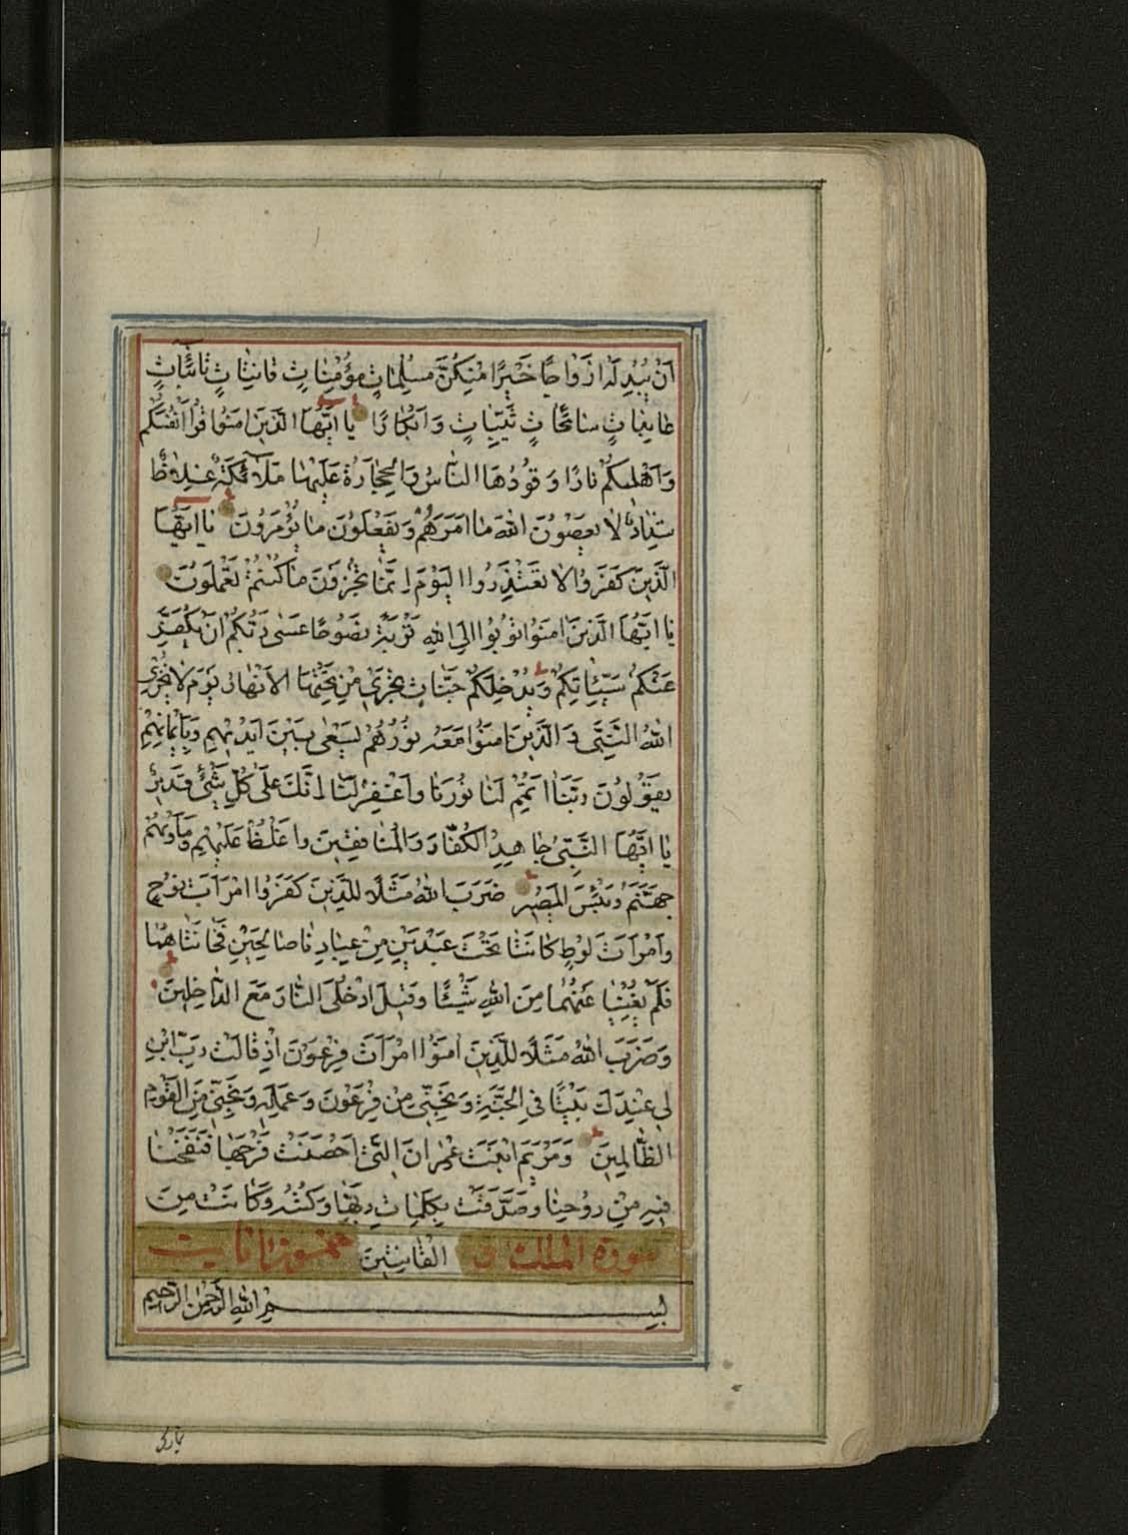 اَنْ يُبْدِلَهُ اَزْوَاجًا خَيْرًا مِنْكُنَّ مُسْلِمَاتٍ مُؤْمِنَاتٍ قَانِتَاتٍ تَائِبَاتٍ
عَابِدَاتٍ سَائِحَاتٍ ثَيِّبَاتٍ وَاَبْكَارًا يَا اَيُّهَا الَّذِينَ اٰمَنُوا قُوا اَنْفُسَكُمْ
وَاَهْلِيكُمْ نَارًا وَقُودُهَا النَّاسُ وَالْحِجَارَةُ عَلَيْهَا مَلَآئِكَةٌ غِلَاظٌ
شِدَادٌ لَا يَعْصُونَ اللّٰهَ مَا اَمَرَهُمْ وَيَفْعَلُونَ مَا يُؤْمَرُونَ يَا اَيُّهَا
الَّذِينَ كَفَرُوا لَا تَعْتَذِرُوا الْيَوْمَ اِنَّمَا تُجْزَوْنَ مَا كُنْتُمْ تَعْمَلُونَ
يَا اَيُّهَا الَّذِينَ اٰمَنُوا تُوبُوا اِلَى اللّٰهِ تَوْبَةً نَصُوحًا عَسٰى رَبُّكُمْ اَنْ يُكَفِّرَ
عَنْكُمْ سَيِّئَاتِكُمْ وَيُدْخِلَكُمْ جَنَّاتٍ تَجْرِي مِنْ تَحْتِهَا الْاَنْهَارُ يَوْمَ لَا يُخْزِي
اللّٰهُ النَّبِيَّ وَالَّذِينَ اٰمَنُوا مَعَهُ نُورُهُمْ يَسْعٰى بَيْنَ اَيْدِيهِمْ وَبِاَيْمَانِهِمْ
يَقُولُونَ رَبَّنَا اَتْمِمْ لَنَا نُورَنَا وَاغْفِرْ لَنَا اِنَّكَ عَلٰى كُلِّ شَيْءٍ قَدِيرٌ
يَا اَيُّهَا النَّبِيُّ جَاهِدِ الْكُفَّارَ وَالْمُنَافِقِينَ وَاغْلُظْ عَلَيْهِمْ وَمَأْوٰيهُمْ
جَهَنَّمُ وَبِئْسَ الْمَصِيرُ ضَرَبَ اللّٰهُ مَثَلًا لِلَّذِينَ كَفَرُوا امْرَاَتَ نُوحٍ
وَامْرَاَتَ لُوطٍ كَانَتَا تَحْتَ عَبْدَيْنِ مِنْ عِبَادِنَا صَالِحَيْنِ فَخَانَتَاهُمَا
فَلَمْ يُغْنِيَا عَنْهُمَا مِنَ اللّٰهِ شَيْئًا وَقِيلَ ادْخُلَا النَّارَ مَعَ الدَّاخِلِينَ
وَضَرَبَ اللّٰهُ مَثَلًا لِلَّذِينَ اٰمَنُوا امْرَاَتَ فِرْعَوْنَ اِذْ قَالَتْ رَبِّ ابْنِ
لِي عِنْدَكَ بَيْتًا فِي الْجَنَّةِ وَنَجِّنِي مِنْ فِرْعَوْنَ وَعَمَلِهِ وَنَجِّنِي مِنَ الْقَوْمِ
الظَّالِمِينَ وَمَرْيَمَ ابْنَتَ عِمْرَانَ الَّتِي اَحْصَنَتْ فَرْجَهَا فَنَفَخْنَا
فِيهِ مِنْ رُوحِنَا وَصَدَّقَتْ بِكَلِمَاتِ رَبِّهَا وَكُتُبِهِ وَكَانَتْ مِنَ
سورة الملك الْقَانِتِينَ
بِسْمِ اللّٰهِ الرَّحْمٰنِ الرَّحِيمِ